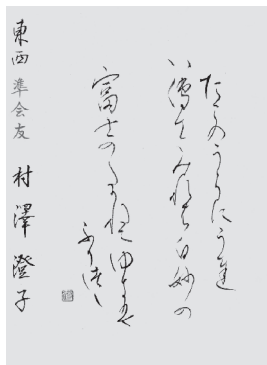 たこのうらにうち
いてみれは白妙の
富士のたかねにゆきは
ふりつゝ
東西 準会友 村澤澄子